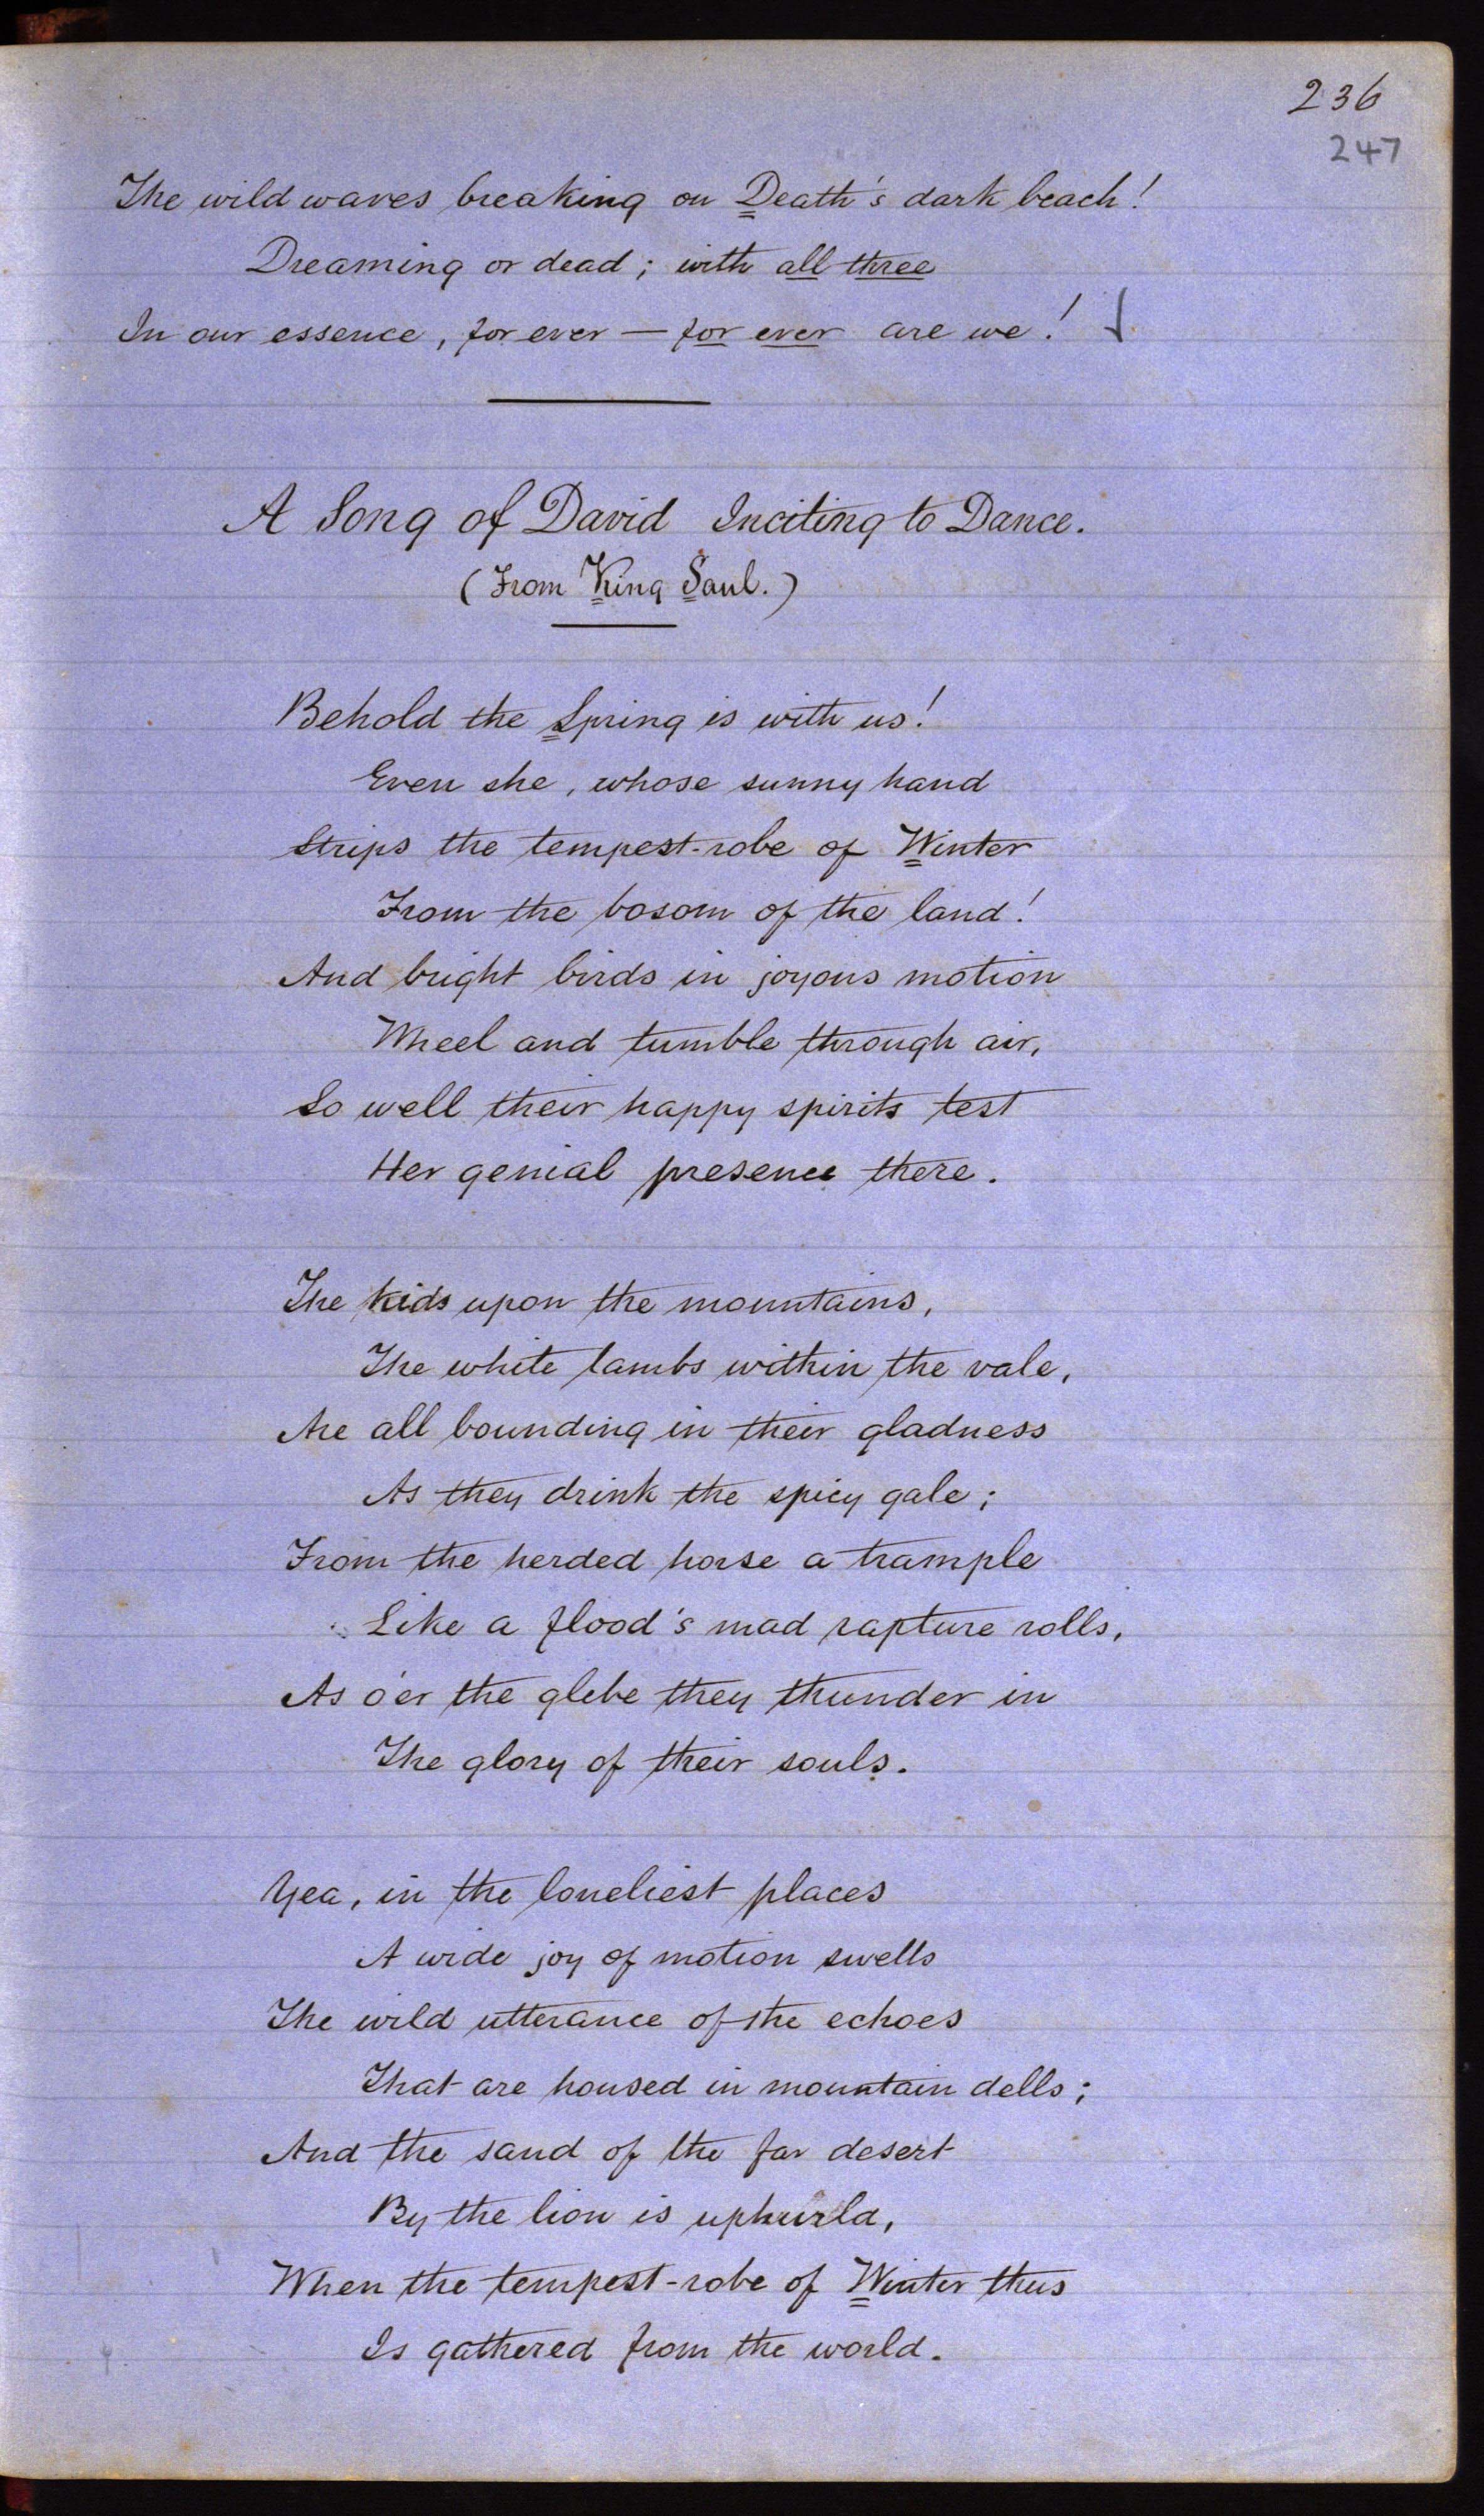 236
247
The wild waves breaking on Death's dark beach!
Dreaming or dead; with all three
In our essence, for ever — for ever are we!
A Song of David Inciting to Dance.
(From King Saul.)
Behold the Spring is with us!
Even she, whose sunny hand
Strips the tempest-robe of Winter
From the bosom of the land!
And bright birds in joyous motion
Wheel and tumble through air,
So well their happy spirits test
Her genial presence there.
The kids upon the mountains,
The white lambs within the vale,
Are all bounding in their gladness
As they drink the spicy gale;
From the herded horse a trample
Like a flood's mad rapture rolls,
As o'er the glebe they thunder in
The glory of their souls.
Yea, in the loneliest places
A wide joy of motion swells
The wild utterance of the echoes
That are housed in mountain dells;
And the sand of the far desert
By the lion is uphurld,
When the tempest-robe of Winter thus
Is gathered from the world.